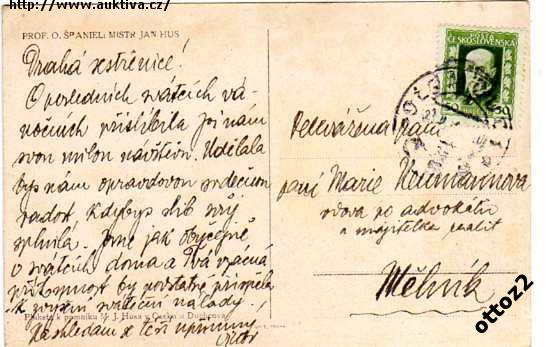 http://www.auktiva.cz/
PROF. O. ŠPANIEL: MISTR JAN HUS
Drahá sestřenice!
O posledních svátcích vá-
nočních přislíbila jsi nám
svou milou návštěvu. Udělala
bys nám opravdovou srdečnou
radost, kdybys slib svůj
splnila. Jsme jak obyčejně
o svátcích doma a Tvá vzácná
přítomnost by podstatně přispěla
k zvýšení sváteční nálady.
Na shledanou se těší upřímný
Plaketa k pomníku M. J. Husa v Duchcově
POŠTA
ČESKOSLOVENSKÁ
50
Velevážená paní
paní Marie Neumannova
vdova po advokátu
a majitelka realit
Mělník
ottoz2